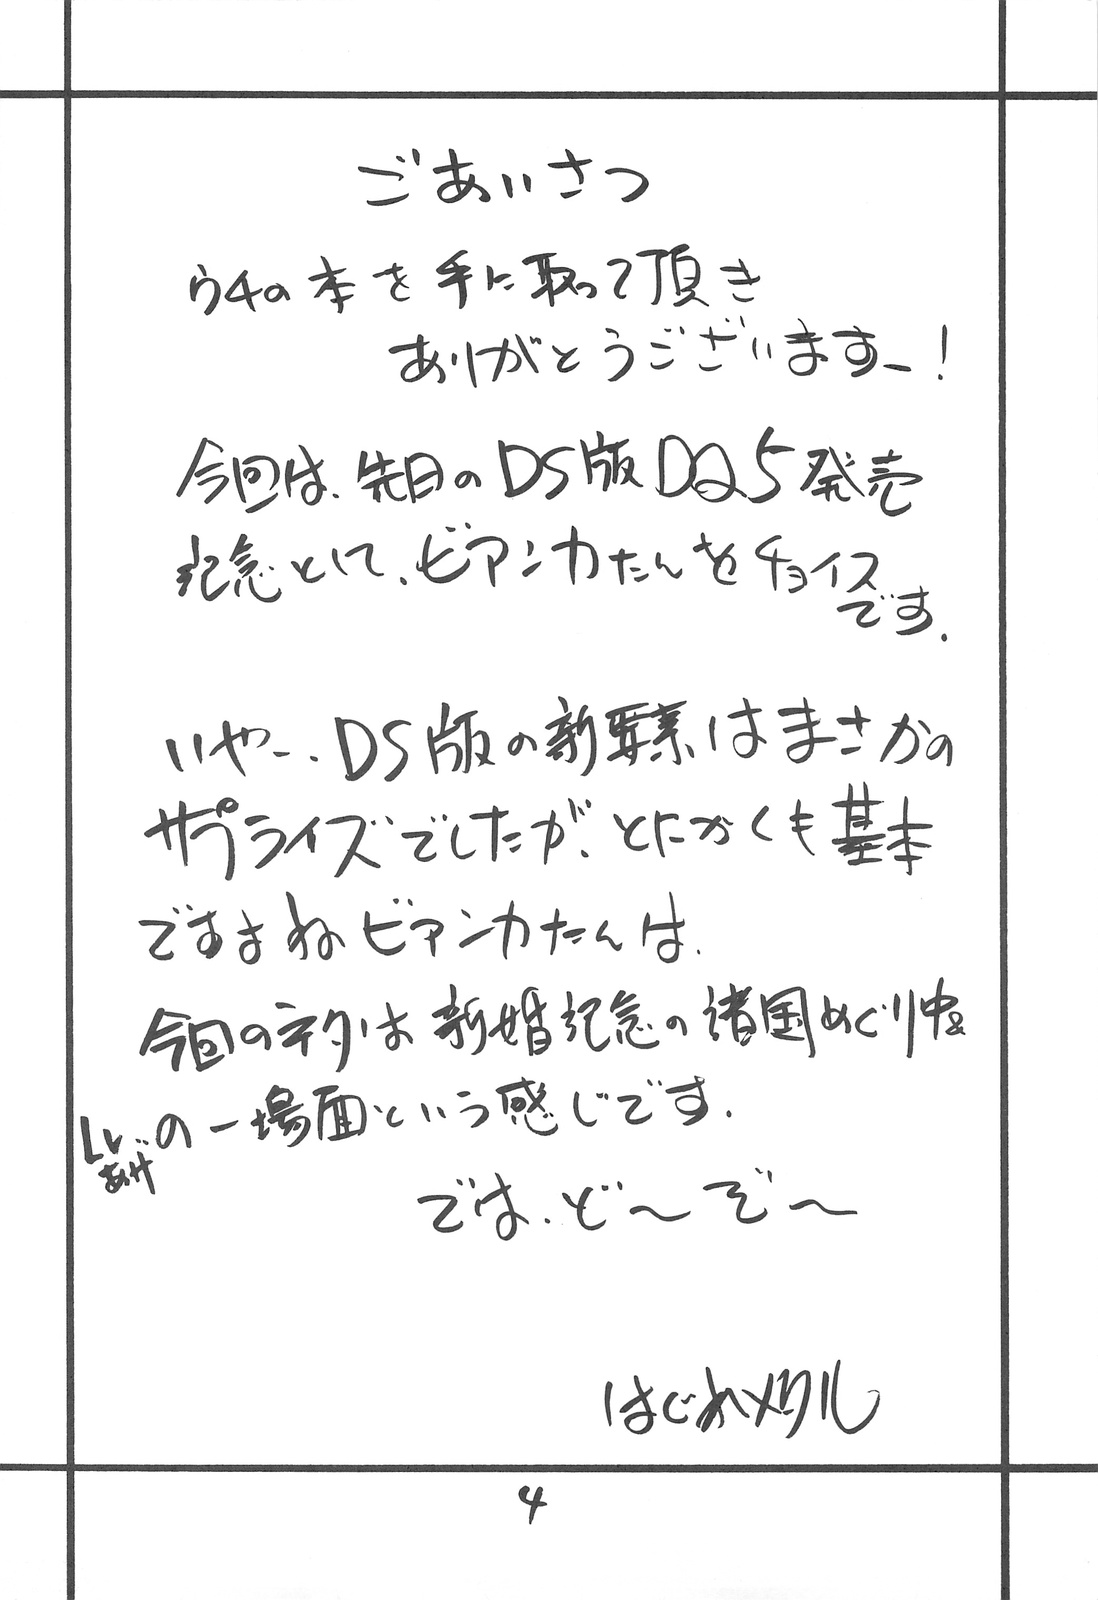 ごあいさつ
ウチの本を手に取って頂き
ありがとうございますー!
今回は、先日のDS版DQ5発売
記念として、ビアンカたんをチョイス
です.
いやー、DS版の新要素はまさかの
サプライズでしたが、とにかくも基本
ですよねビアンカたんは.
今回のネタは新婚記念の諸国めぐり中&
の一場面という感じです.
では、ど〜ぞ〜
はじめメタル
4